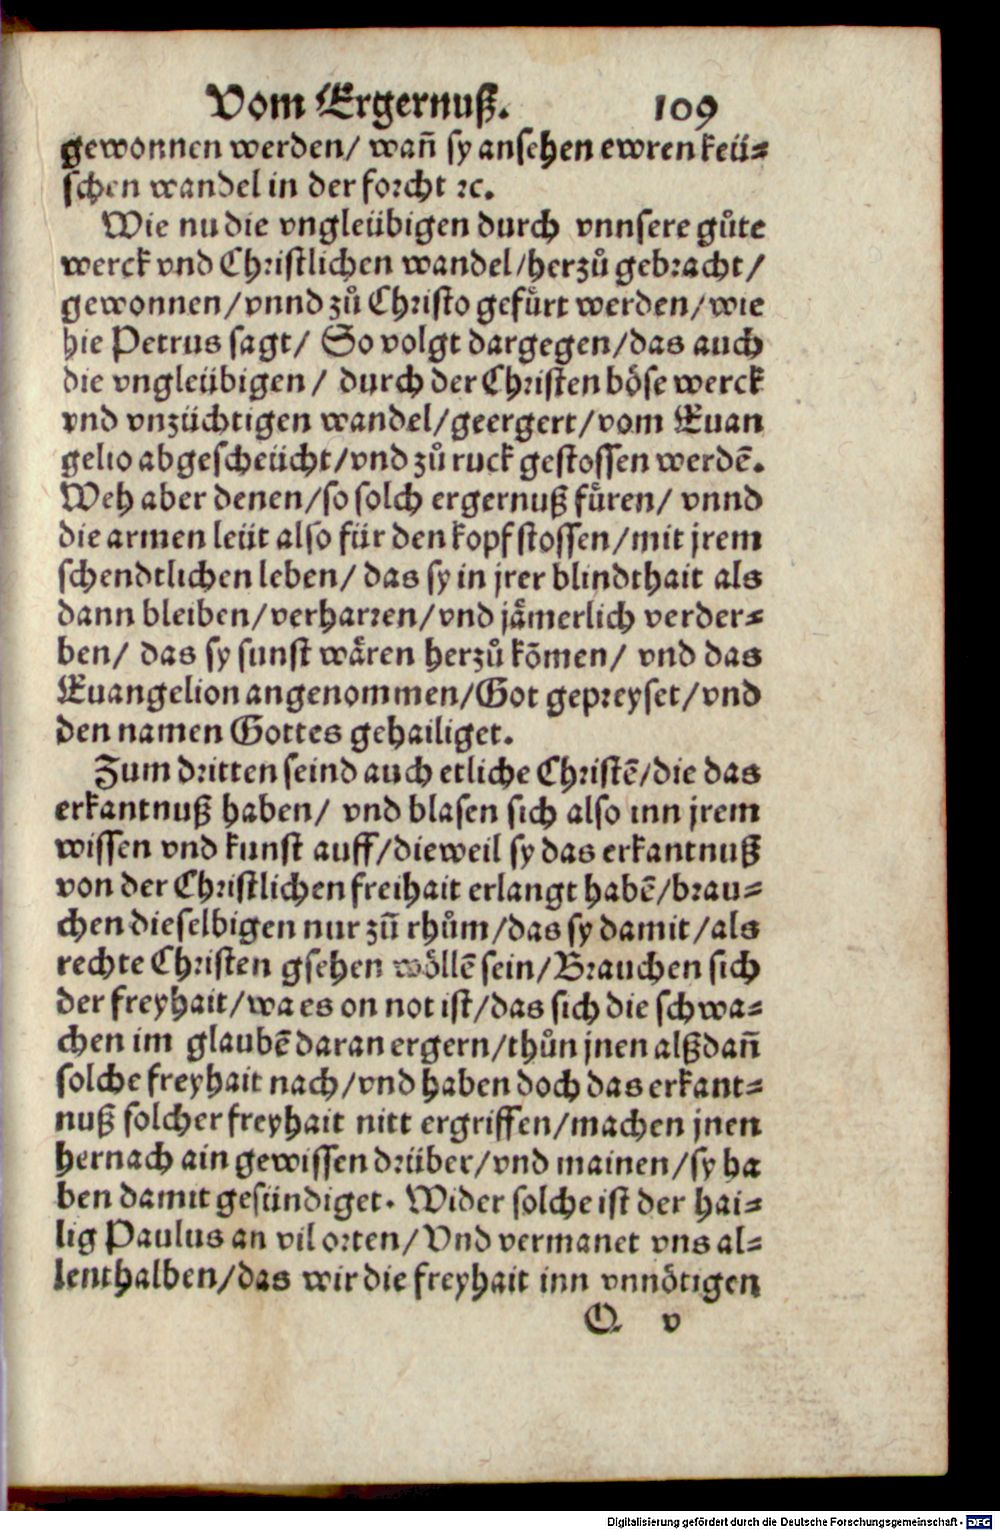 Vom Ergernuß. 109
gewonnen werden/ wañ sy ansehen ewren keü⸗
schen wandel in der forcht ꝛc.
Wie nu die vngleübigen durch vnnsere gůte
werck vnd Christlichen wandel/herzů gebracht/
gewonnen/vnnd zů Christo gefürt werden/wie
hie Petrus sagt/ So volgt dargegen/das auch
die vngleübigen/ durch der Christen böse werck
vnd vnzüchtigen wandel/geergert/vom Euan
gelio abgescheücht/vnd zů ruck gestossen werdẽ.
Weh aber denen/so solch ergernuß füren/ vnnd
die armen leüt also für den kopf stossen/mit jrem
schendtlichen leben/ das sy in jrer blindthait als
dann bleiben/verharren/vnd jämerlich verder⸗
ben/ das sy sunst wären herzů kõmen/ vnd das
Euangelion angenommen/Got gepreyset/vnd
den namen Gottes gehailiget.
Zum dritten seind auch etliche Christẽ/die das
erkantnuß haben/ vnd blasen sich also inn jrem
wissen vnd kunst auff/dieweil sy das erkantnuß
von der Christlichen freihait erlangt habẽ/brau⸗
chen dieselbigen nur zũ rhům/das sy damit/als
rechte Christen gsehen wöllẽ sein/Brauchen sich
der freyhait/wa es on not ist/das sich die schwa⸗
chen im glaubẽ daran ergern/thůn jnen alßdañ
solche freyhait nach/vnd haben doch das erkant⸗
nuß solcher freyhait nitt ergriffen/machen jnen
hernach ain gewissen drüber/vnd mainen/sy ha
ben damit gesündiget. Wider solche ist der hai⸗
lig Paulus an vil orten/Vnd vermanet vns al⸗
lenthalben/das wir die freyhait inn vnnötigen
O v
Digitalisierung gefördert durch die Deutsche Forschungsgemeinschaft - DFG